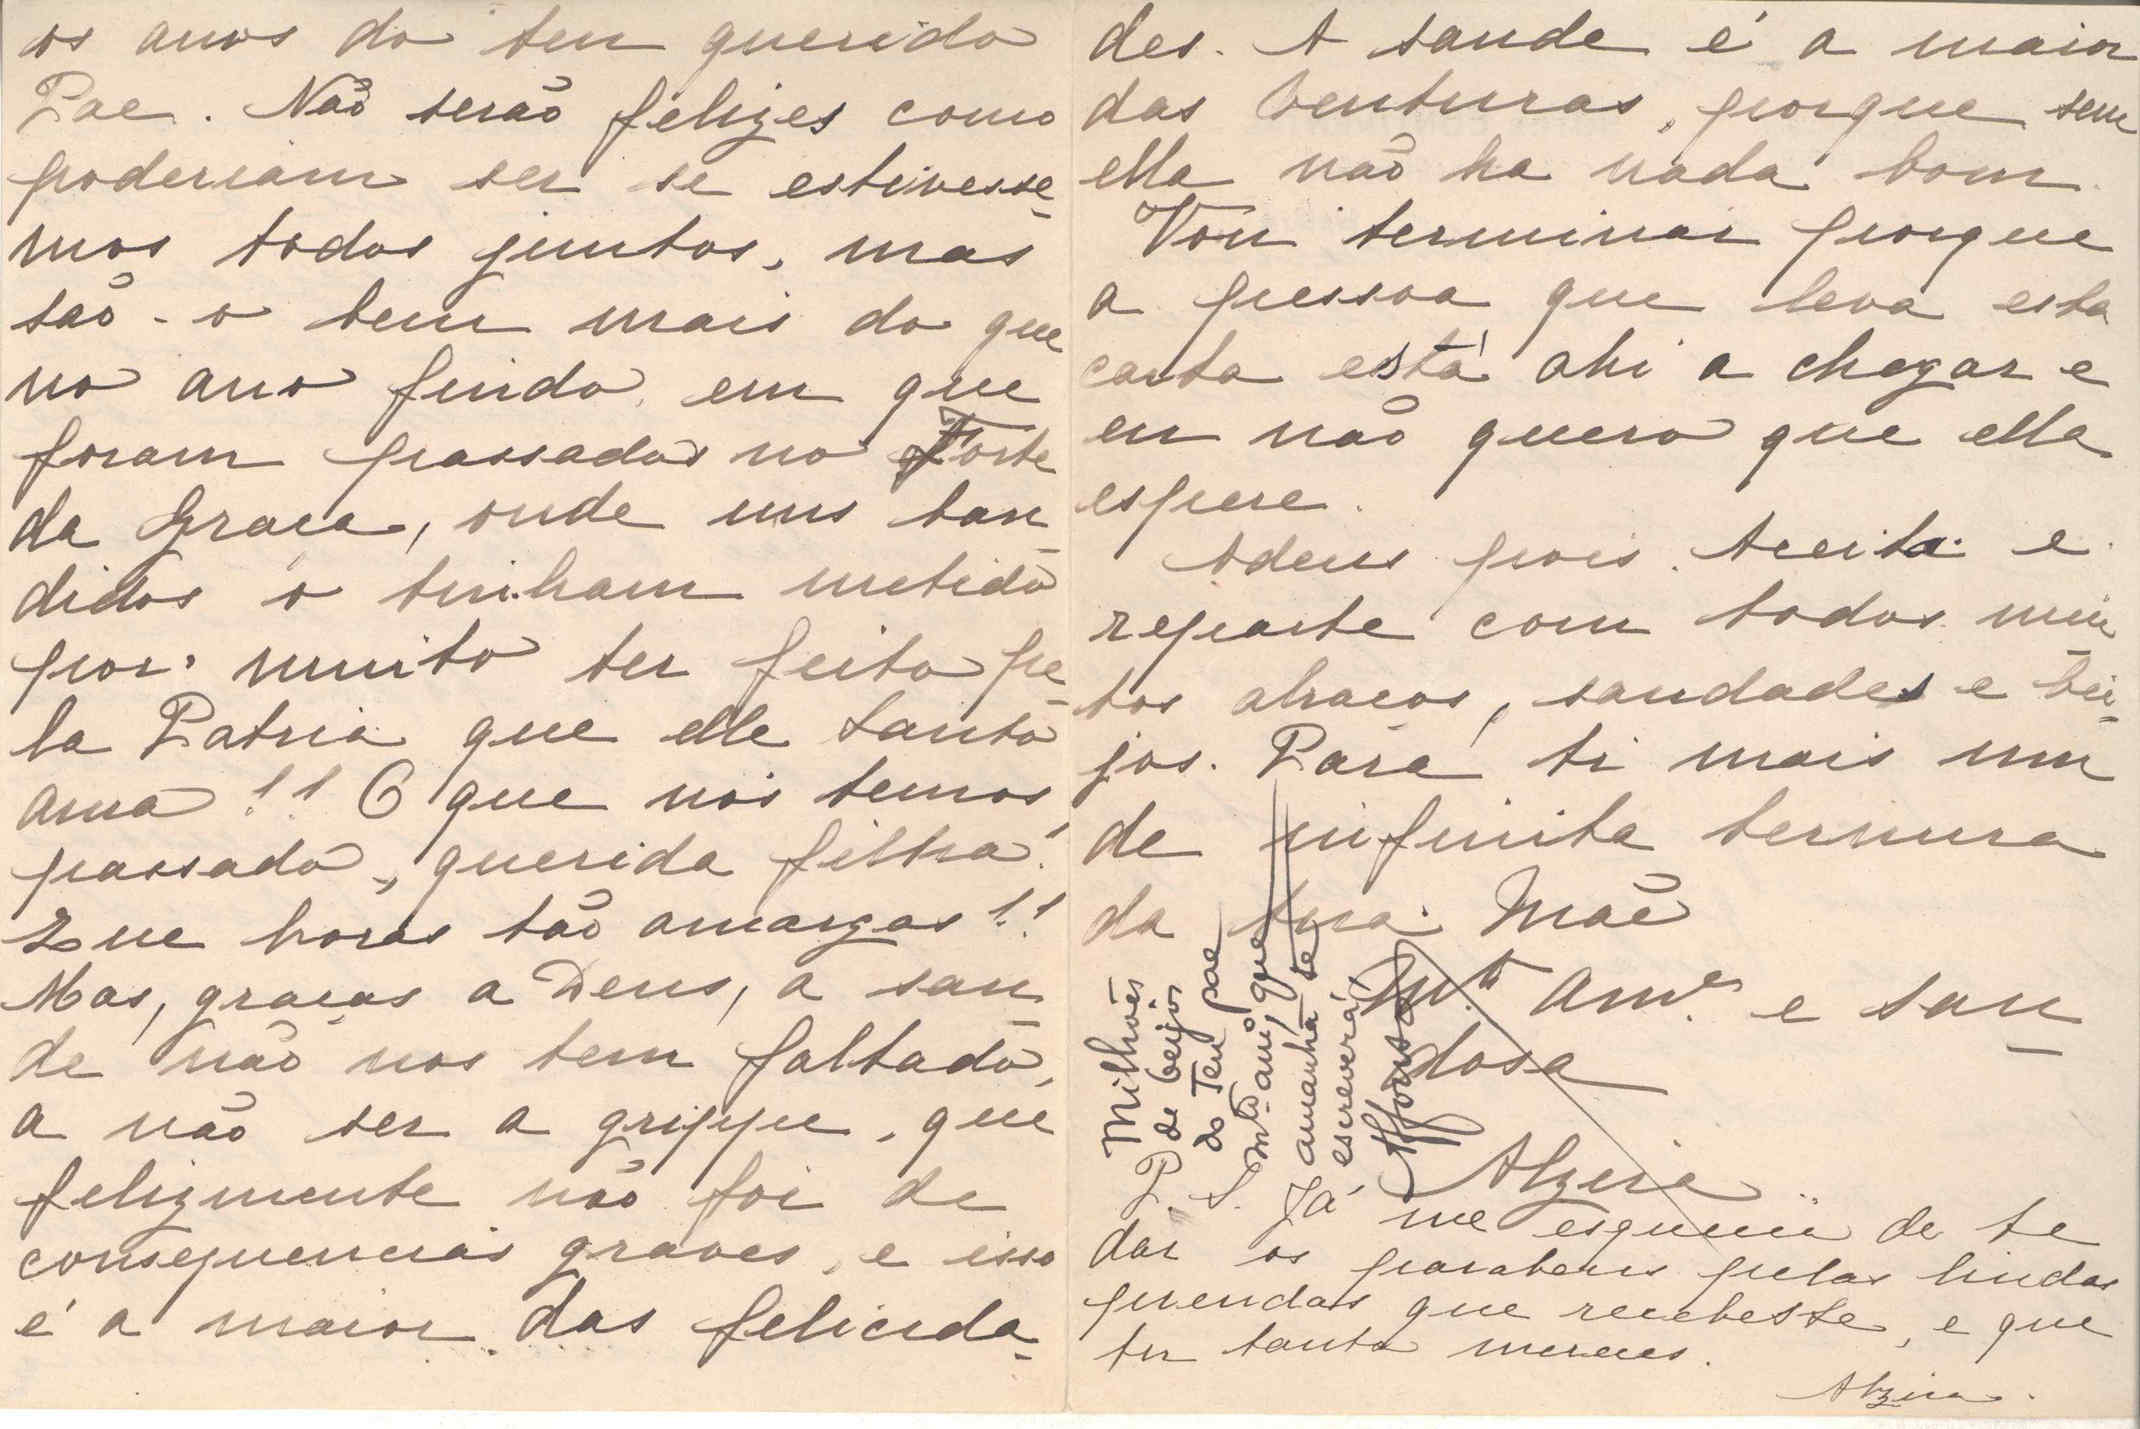 os anos do teu querido
Pae. Não serão felizes como
poderiam ser se estivesse-
mos todos juntos, mas
são-o bem mais do que
no ano findo, em que
foram passados no Forte
da Graça, onde uns ban-
didos o tinham metido
por muito ter feito pe-
la Patria que elle tanto
ama!! O que nós temos
passado, querida filha!
Que horas tão amargas!!
Mas, graças a Deus, a sau-
de não nos tem faltado,
a não ser a grippe, que
felizmente não foi de
consequencias graves, e isso
é a maior das felicida-
des. A saude é a maior
das venturas, porque sem
ella não ha nada bom.
Vou terminar porque
a pessoa que leva esta
carta está ahi a chegar e
eu não quero que ella
espere.
Adeus pois. Aceita e
reparte com todos mui-
tos abraços, saudades e bei-
jos. Para ti mais um
de infinita ternura
da tua Mãe
Mto. Ame. e sau-
dosa
Alzira
P. S. Já me esquecia de te
dar os parabens pelas lindas
prendas que recebeste, e que
tu tanto mereces.
Alzira.
Milhões
de beijos
do Teu pae
Mto. amo. que
amanhã te
escreverá
Affonso